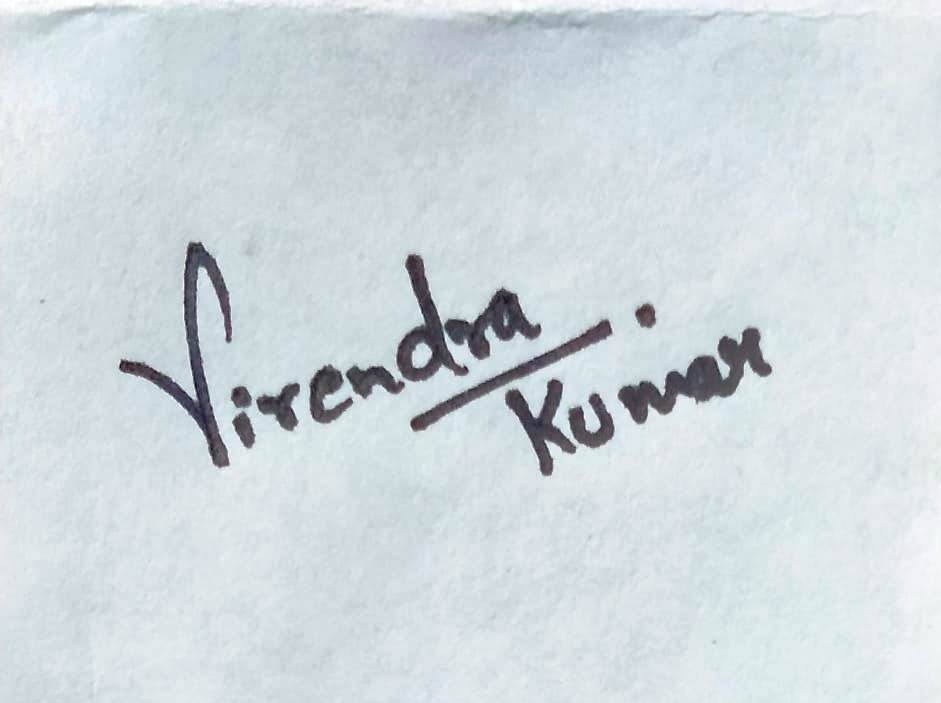 Virendra
Kumar